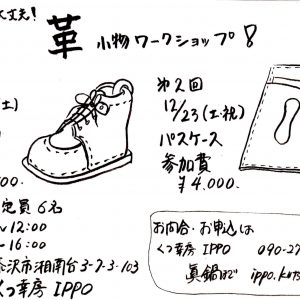 丈夫!
革 小物ワークショップ!
土)
000.
定員6名
~12:00
-16:00
沢市湘南台3-7-3-103
くつ幸房IPPO
第2回
12/23(土・祝)
パスケース
参加費
¥4.000.
お問合・お申込は
くつ幸房IPPO 090-27
眞鍋まで ippo.kuts